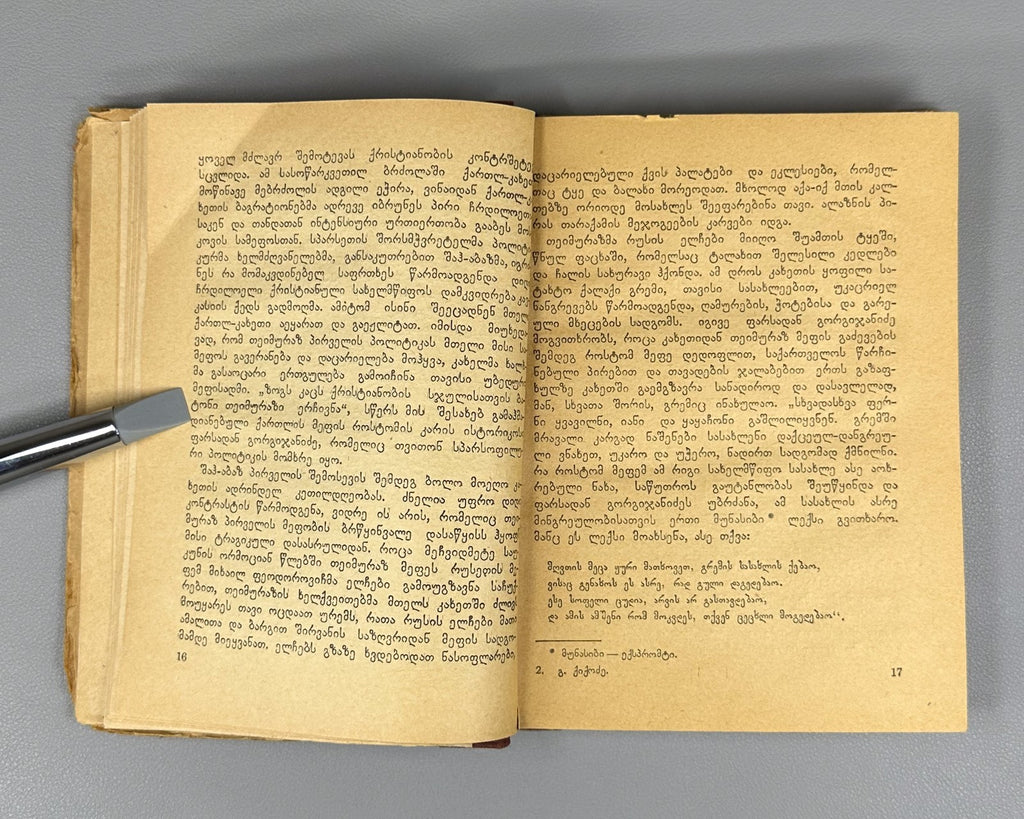 ყოველ მძლავრ შემოტევას ქრისტიანობის კონტრშეტე
სცვლიდა. ამ სასოწარკვეთილ ბრძოლაში ქართლ-კახე
მოწინავე მებრძოლის ადგილი ეჭირა, ვინაიდან ქართლ-კ
ხეთის ბაგრატიონებმა ადრევე იბრუნეს პირი ჩრდილოეთ
საკენ და თანდათან ინტენსიური ურთიერთობა გააბეს მო
კოვის სამეფოსთან. სპარსეთის შორსმჭვრეტელმა პოლიტი
კურმა ხელმძღვანელებმა, განსაკუთრებით შაჰ-აბაზმა, იგრ
ნეს რა მომაკვდინებელ საფრთხეს წარმოადგენდა დიდ
ჩრდილოელი ქრისტიანული სახელმწიფოს დამკვიდრება კავ
კასიის ქედს გადმოღმა. ამიტომ ისინი შეეცადნენ მთელ
ქართლ-კახეთი აეყარათ და გაეჟლიტათ. იმისდა მიუხედა
ვად, რომ თეიმურაზ პირველის პოლიტიკას მთელი მისი სა
მეფოს გავერანება და დაცარიელება მოჰყვა, კახელმა ხალხ
მა გასაოცარი ერთგულება გამოიჩინა თავისი უბედურ
მეფისადმი. „ზოგს კაცს ქრისტიანობის სჯულისათვის ბა
ტონი თეიმურაზი ერჩივნა“, სწერს მის შესახებ გამაჰმა
დიანებული ქართლის მეფის როსტომის კარის ისტორიკოსი
ფარსადან გორგიჯანიძე, რომელიც თვითონ სპარსოფილუ
რი პოლიტიკის მომხრე იყო.
შაჰ-აბაზ პირველის შემოსევის შემდეგ ბოლო მოეღო კა
ხეთის ადრინდელ კეთილდღეობას. ძნელია უფრო დიდი
კონტრასტის წარმოდგენა, ვიდრე ის არის, რომელიც თეი
მურაზ პირველის მეფობის ბრწყინვალე დასაწყისს ჰყოფ
მისი ტრაგიკული დასასრულიდან. როცა მეჩვიდმეტე საუ
კუნის ორმოციან წლებში თეიმურაზ მეფეს რუსეთის მე
ფემ მიხაილ ფეოდოროვიჩმა ელჩები გამოუგზავნა საჩუქ
რებით, თეიმურაზის ხელქვეითებმა მთელს კახეთში ძლივ
მოუყარეს თავი ოცდაათ ურემს, რათა რუსის ელჩები მათი
ამალითა და ბარგით შირვანის საზღვრიდან მეფის სადგო
მამდე მიეყვანათ. ელჩებს გზაზე ხვდებოდათ ნასოფლარები,
16
დაცარიელებული ქვის პალატები და ეკლესიები, რომელ-
თაც ტყე და ბალახი მორეოდათ. მხოლოდ აქა-იქ მთის კალ-
თებზე ორიოდე მოსახლეს შეეფარებინა თავი. ალაზნის პი-
რას თარაქამის მეჯოგეების კარვები იდგა.
თეიმურაზმა რუსის ელჩები მიიღო შუამთის ტყეში,
წნულ ფაცხაში, რომელსაც ტალახით შელესილი კედლები
და ჩალის სახურავი ჰქონდა. ამ დროს კახეთის ყოფილი სა-
ტახტო ქალაქი გრემი, თავისი სასახლეებით, უკაცრიელ
ნანგრევებს წარმოადგენდა, ღამურების, ჭოტებისა და გარე-
ული მხეცების სადგომს. იგივე ფარსადან გორგიჯანიძე
მოგვითხრობს, როცა კახეთიდან თეიმურაზ მეფის გაძევების
შემდეგ როსტომ მეფე დედოფლით, საქართველოს წარჩი-
ნებული პირებით და თავადების ჯალაბებით ერთს გაზაფ-
ხულზე კახეთში გაემგზავრა სანადიროდ და დასავლელად,
მან, სხვათა შორის, გრემიც ინახულაო. „სხვადასხვა ფერ-
ნი ყვავილნი, იანი და ყაყაჩონი გაშლილიყვნენ. გრემში
მრავალი კარგად ნაშენები სასახლენი დაქცეულ-დანგრეუ-
ლი ვნახეთ, უკარო და უჭერო, ნადირთ სადგომად ქმნილნი.
რა როსტომ მეფემ ამ რიგი სახელმწიფო სასახლე ასე აოხ-
რებული ნახა, საწუთროს გაუტანლობას შეუწყინდა და
ფარსადან გორგიჯანიძეს უბრძანა, ამ სასახლის ასრე
მინგრეულობისათვის ერთი მუნასიბი* ლექსი გვითხარო.
მანც ეს ლექსი მოახსენა, ასე თქვა:
მღვთის მეცა ჟური მათხოვეთ, გრემის სასახლის ქებაო,
ვისაც გენახოს ეს ასრე, რად გული დაგედებაო.
ესე სოფელი ცუდია, არვის არ გასთავდებაო,
და ამის ამშენი რომ მოკვდეს, თქვენ ცეცხლი მოგედებაო“.
* მუნასიბი — ექსპრომტი.
2. გ. ქიქოძე.
17